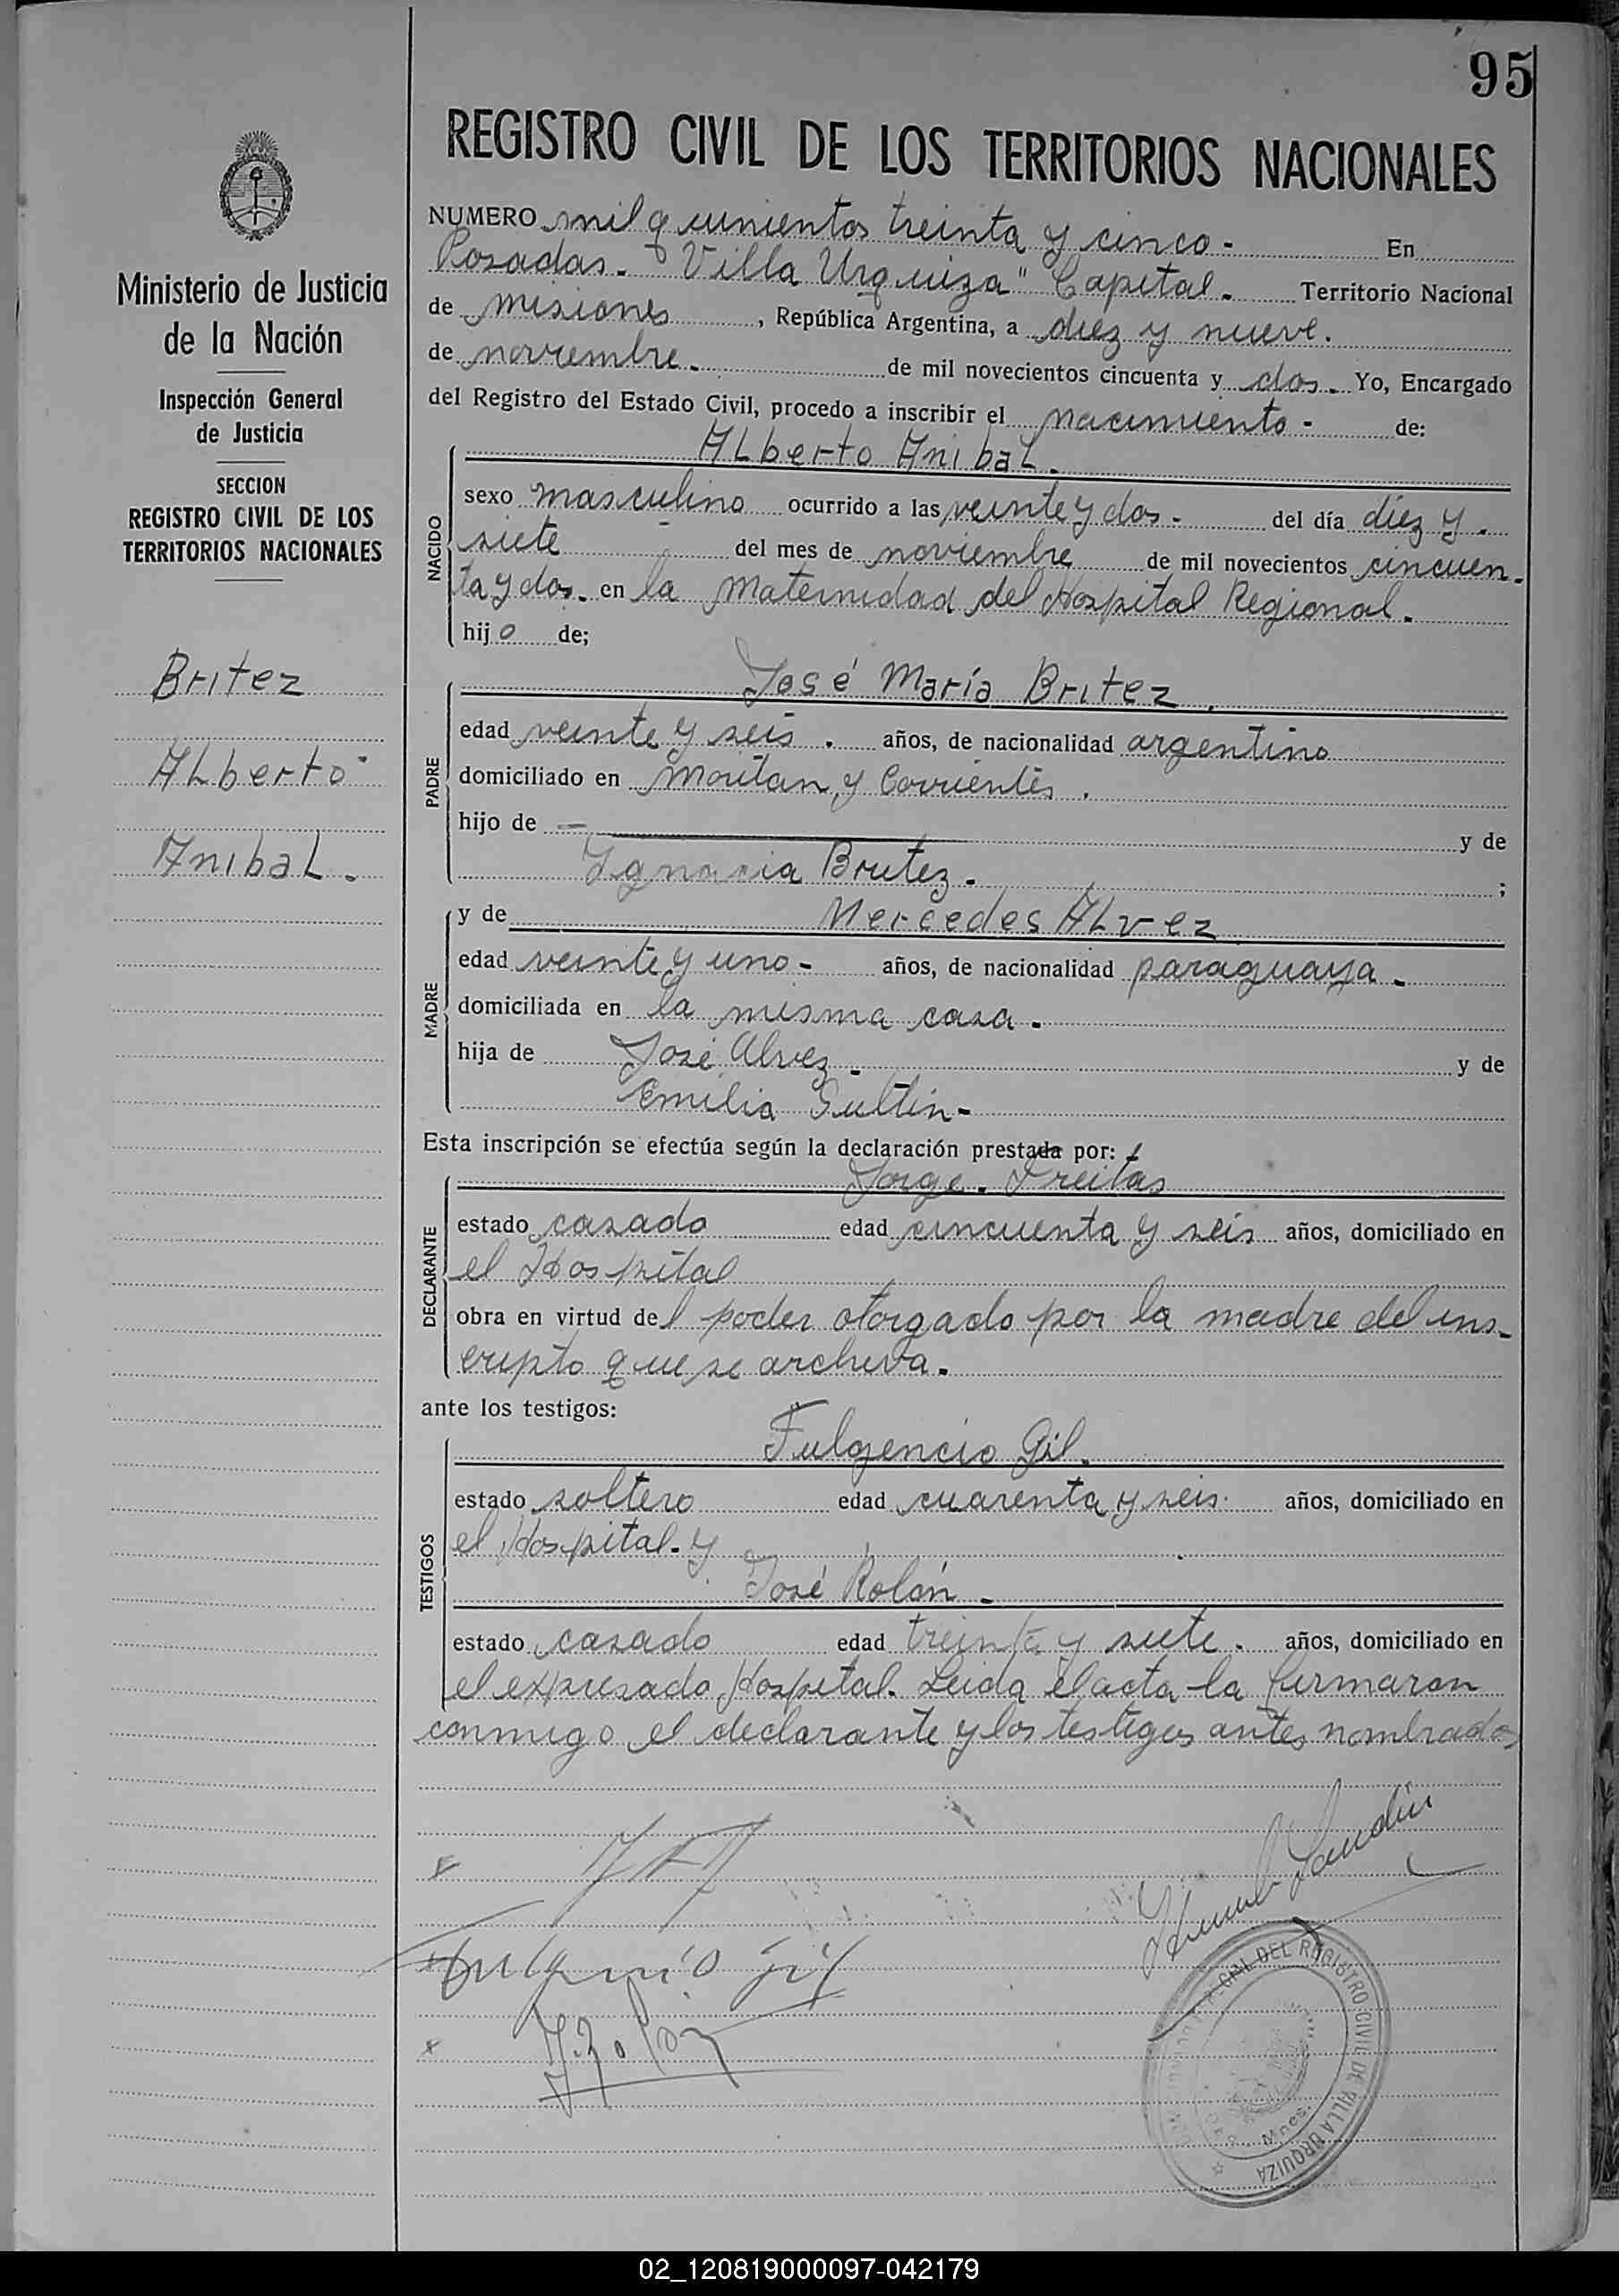 95
REGISTRO CIVIL DE LOS TERRITORIOS NACIONALES
Ministerio de Justicia
de la Nación
Inspección General
de Justicia
SECCION
REGISTRO CIVIL DE LOS
TERRITORIOS NACIONALES
Britez
Alberto
Anibal.
NUMERO mil quinientos treinta y cinco- En
Posadas. "Villa Urquiza" Capital. Territorio Nacional
de Misiones, República Argentina, a diez y nueve.
de noviembre. de mil novecientos cincuenta y dos. Yo, Encargado
del Registro del Estado Civil, procedo a inscribir el nacimiento- de:
NACIDO
Alberto Anibal.
sexo masculino ocurrido a las veinte y dos- del día diez y.
siete del mes de noviembre de mil novecientos cincuen-
ta y dos. en la Maternidad del Hospital Regional.
hijo de;
PADRE
José María Britez.
edad veinte y seis. años, de nacionalidad argentino
domiciliado en y Corrientes.
hijo de — y de
Ignacia Britez. ;
MADRE
y de Mercedes Alvez
edad veinte y uno- años, de nacionalidad paraguaya.
domiciliada en la misma casa.
hija de José Alvez. y de
Emilia
Esta inscripción se efectúa según la declaración prestada por:
DECLARANTE
Jorge. Freitas
estado casado edad cincuenta y seis años, domiciliado en
el Hospital
obra en virtud del poder otorgado por la madre del ins-
cripto que se archiva.
ante los testigos:
TESTIGOS
Fulgencio Gil.
estado soltero edad cuarenta y seis. años, domiciliado en
el Hospital. y
José Rolón.
estado casado edad treinta y siete. años, domiciliado en
el expresado Hospital. Leida el acta la firmaron
conmigo el declarante y los testigos antes nombrados
Fulgencio Gil
J. Rolon
DEL REGISTRO CIVIL DE VILLA URQUIZA
Mnes.
02_120819000097-042179